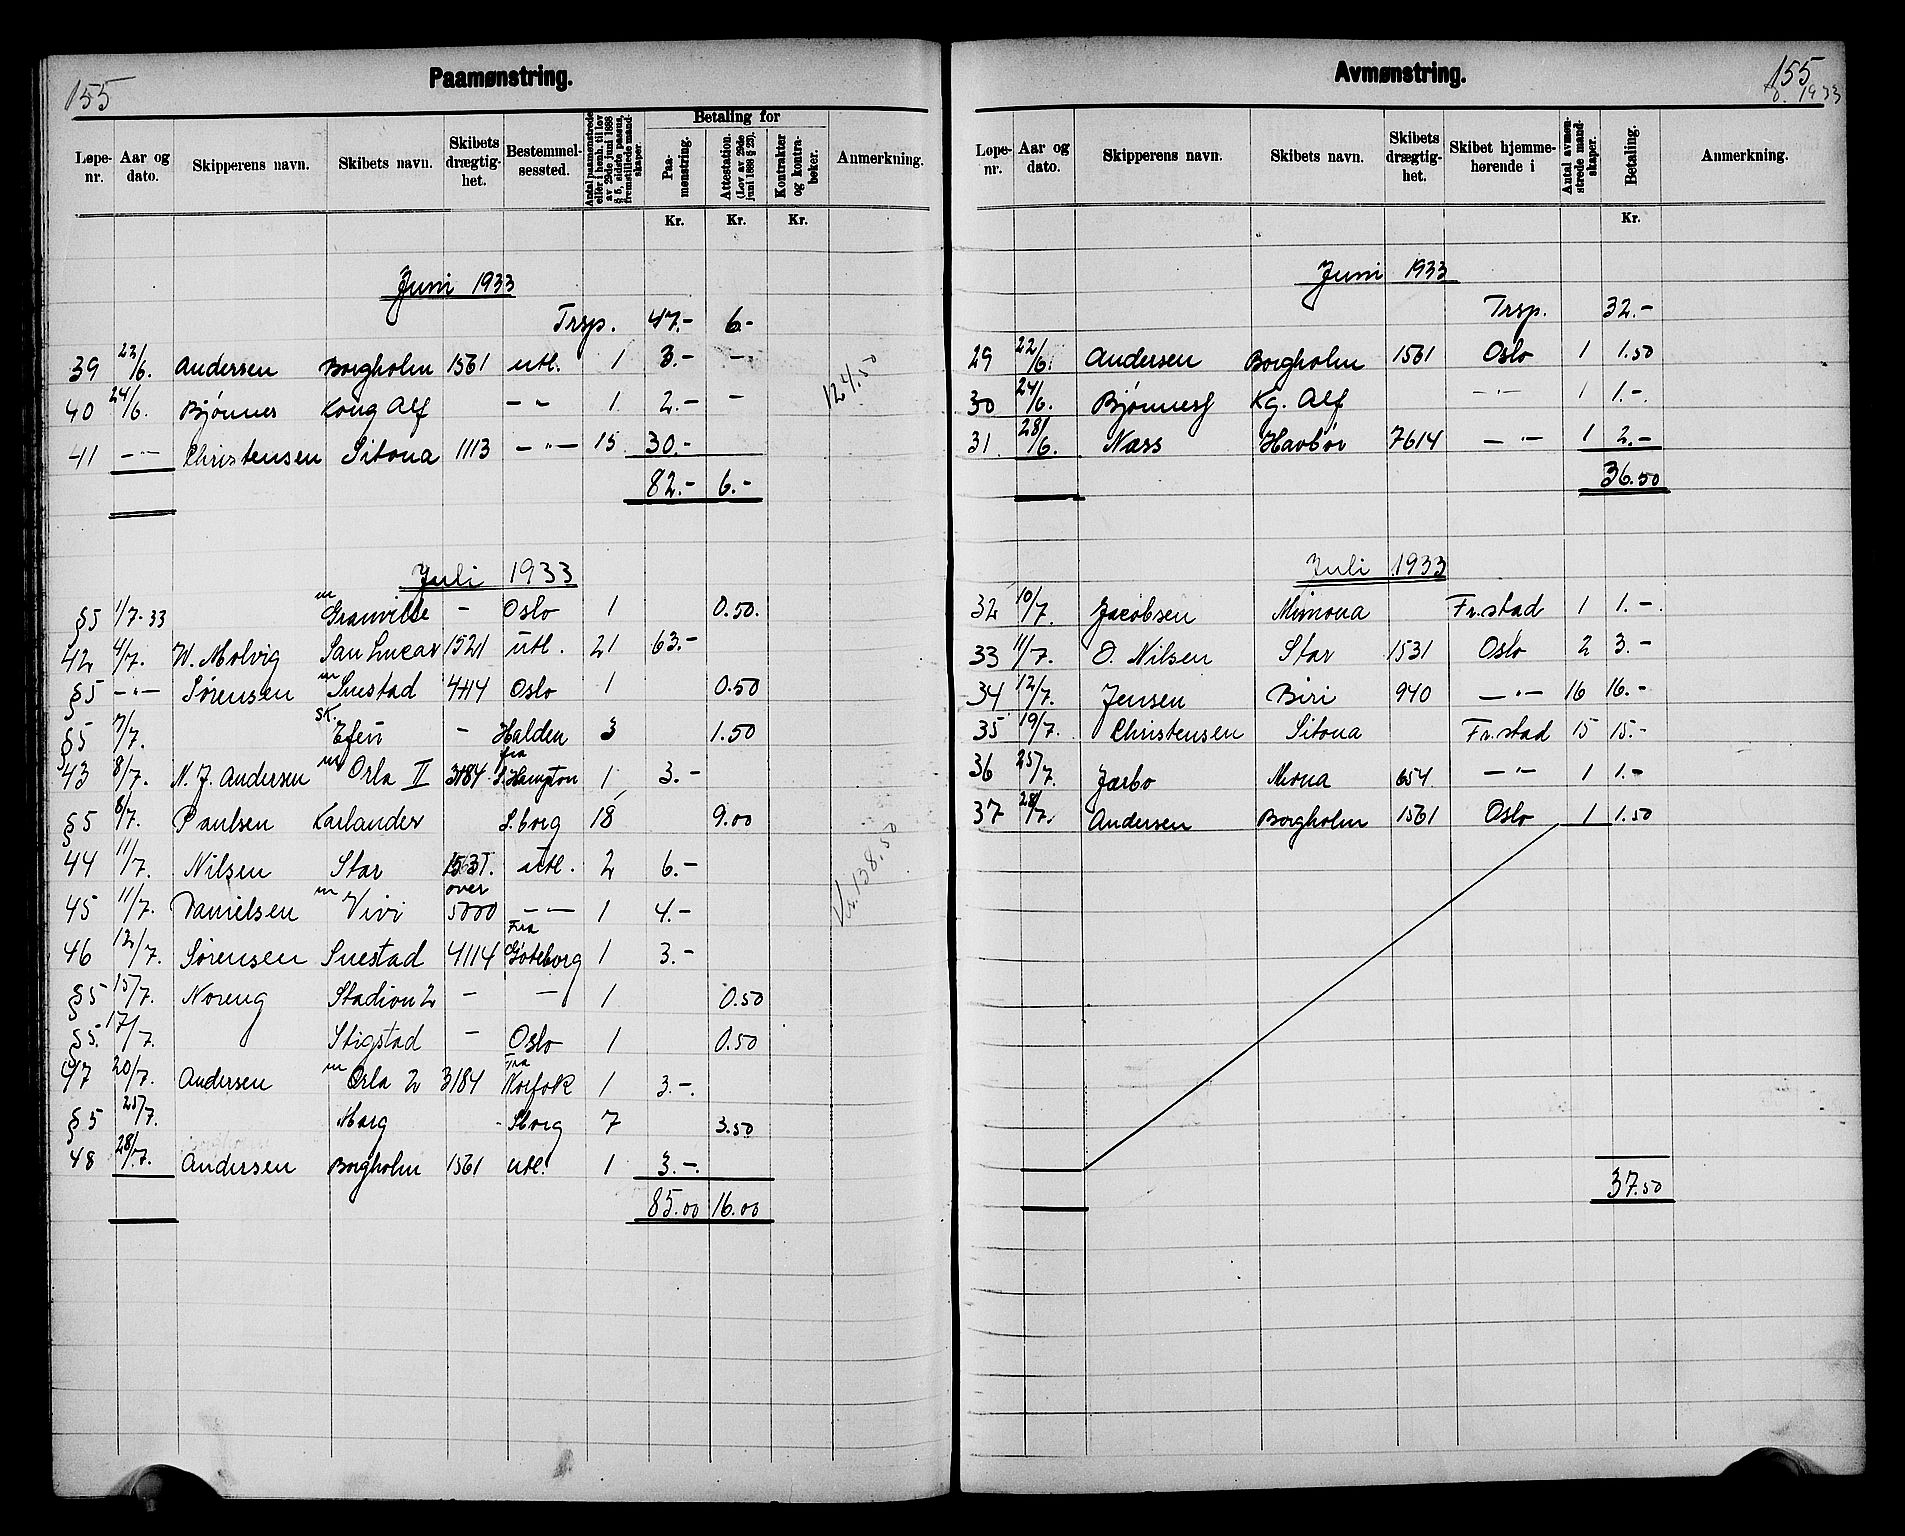 155
Paamønstring.
Løpe-nr. | Aar og dato. | Skipperens navn. | Skibets navn. | Skibets drægtig-het. | Bestemmel-sessted. | Antal paamønstrede eller i henh. til lov av 29de juni 1888 § 5, sidste passus, fremstillede mand-skaper. | Betaling for | Anmerkning.
Paa-mønstring. | Attestation. (Lov av 29de juni 1888 § 29). | Kontrakter og kontra-bøker.
Kr. | Kr. | Kr.
Juni 1933
Trsp. 47.- 6.-
39 22/6. Andersen Borgholm 1561 utl. 1 3.- -
40 24/6. Bjønnes Kong Alf - " - 1 2.- -
124.50
41 - " - Christensen Sitona 1113 - " - 15 30.-
82.- 6.-
Juli 1933
§5 1/7-33 m Granville - Oslo 1 0.50.
42 4/7. W. Molvig San Lucar 1521 utl. 21 63.-
§5 - " - Sørensen m Snestad 4114 Oslo 1 0.50
§5 7/7. sk. Efen - Halden 3 1.50
43 8/7. N. J. Andersen m Orla II 3184 fra S.Hampton 1 3.-
§5 8/7. Paulsen Karlander S.borg 18 9.00
44 11/7. Nilsen Star 1531. utl. 2 6.-
45 11/7. Danielsen m Vivi over 5000 - " - 1 4.-
Kr. 138.50
46 12/7. Sørensen Snestad 4114 Fra Göteborg 1 3.-
§5 15/7. Noreng Stadion 2 - - 1 0.50
§5. 17/7. Stigstad - Oslo 1 0.50
47 20/7. Andersen m Orla 2 3184 Fra Norfok 1 3.-.
§5 25/7. Marg - Sborg 7 3.50
48 28/7. Andersen Borgholm 1561 utl. 1 3.-.
85.00 16.00
155
1933
Avmønstring.
Løpe-nr. | Aar og dato. | Skipperens navn. | Skibets navn. | Skibets drægtig-het. | Skibet hjemme-hørende i | Antal avmøn-strede mand-skaper. | Betaling. | Anmerkning.
Kr.
Juni 1933
Trsp. 32.-
29 22/6. Andersen Borgholm 1561 Oslo 1 1.50
30 24/6. Bjønnes Kg. Alf - " - 1 1.-.
31 28/6. Næss Havbør 7614 - " - 1 2.-
36.50
Juli 1933
32 10/7. Jacobsen Mimona Fr.stad 1 1.-.
33 11/7. O. Nilsen Star 1531 Oslo 2 3.-
34 12/7. Jensen Biri 940 - " - 16 16.-
35 19/7. Christensen Sitona Fr.stad 15 15.-
36 25/7. Jarbo Mona 654. - " - 1 1.-
37 28/7. Andersen Borgholm 1561 Oslo 1 1.50
37.50